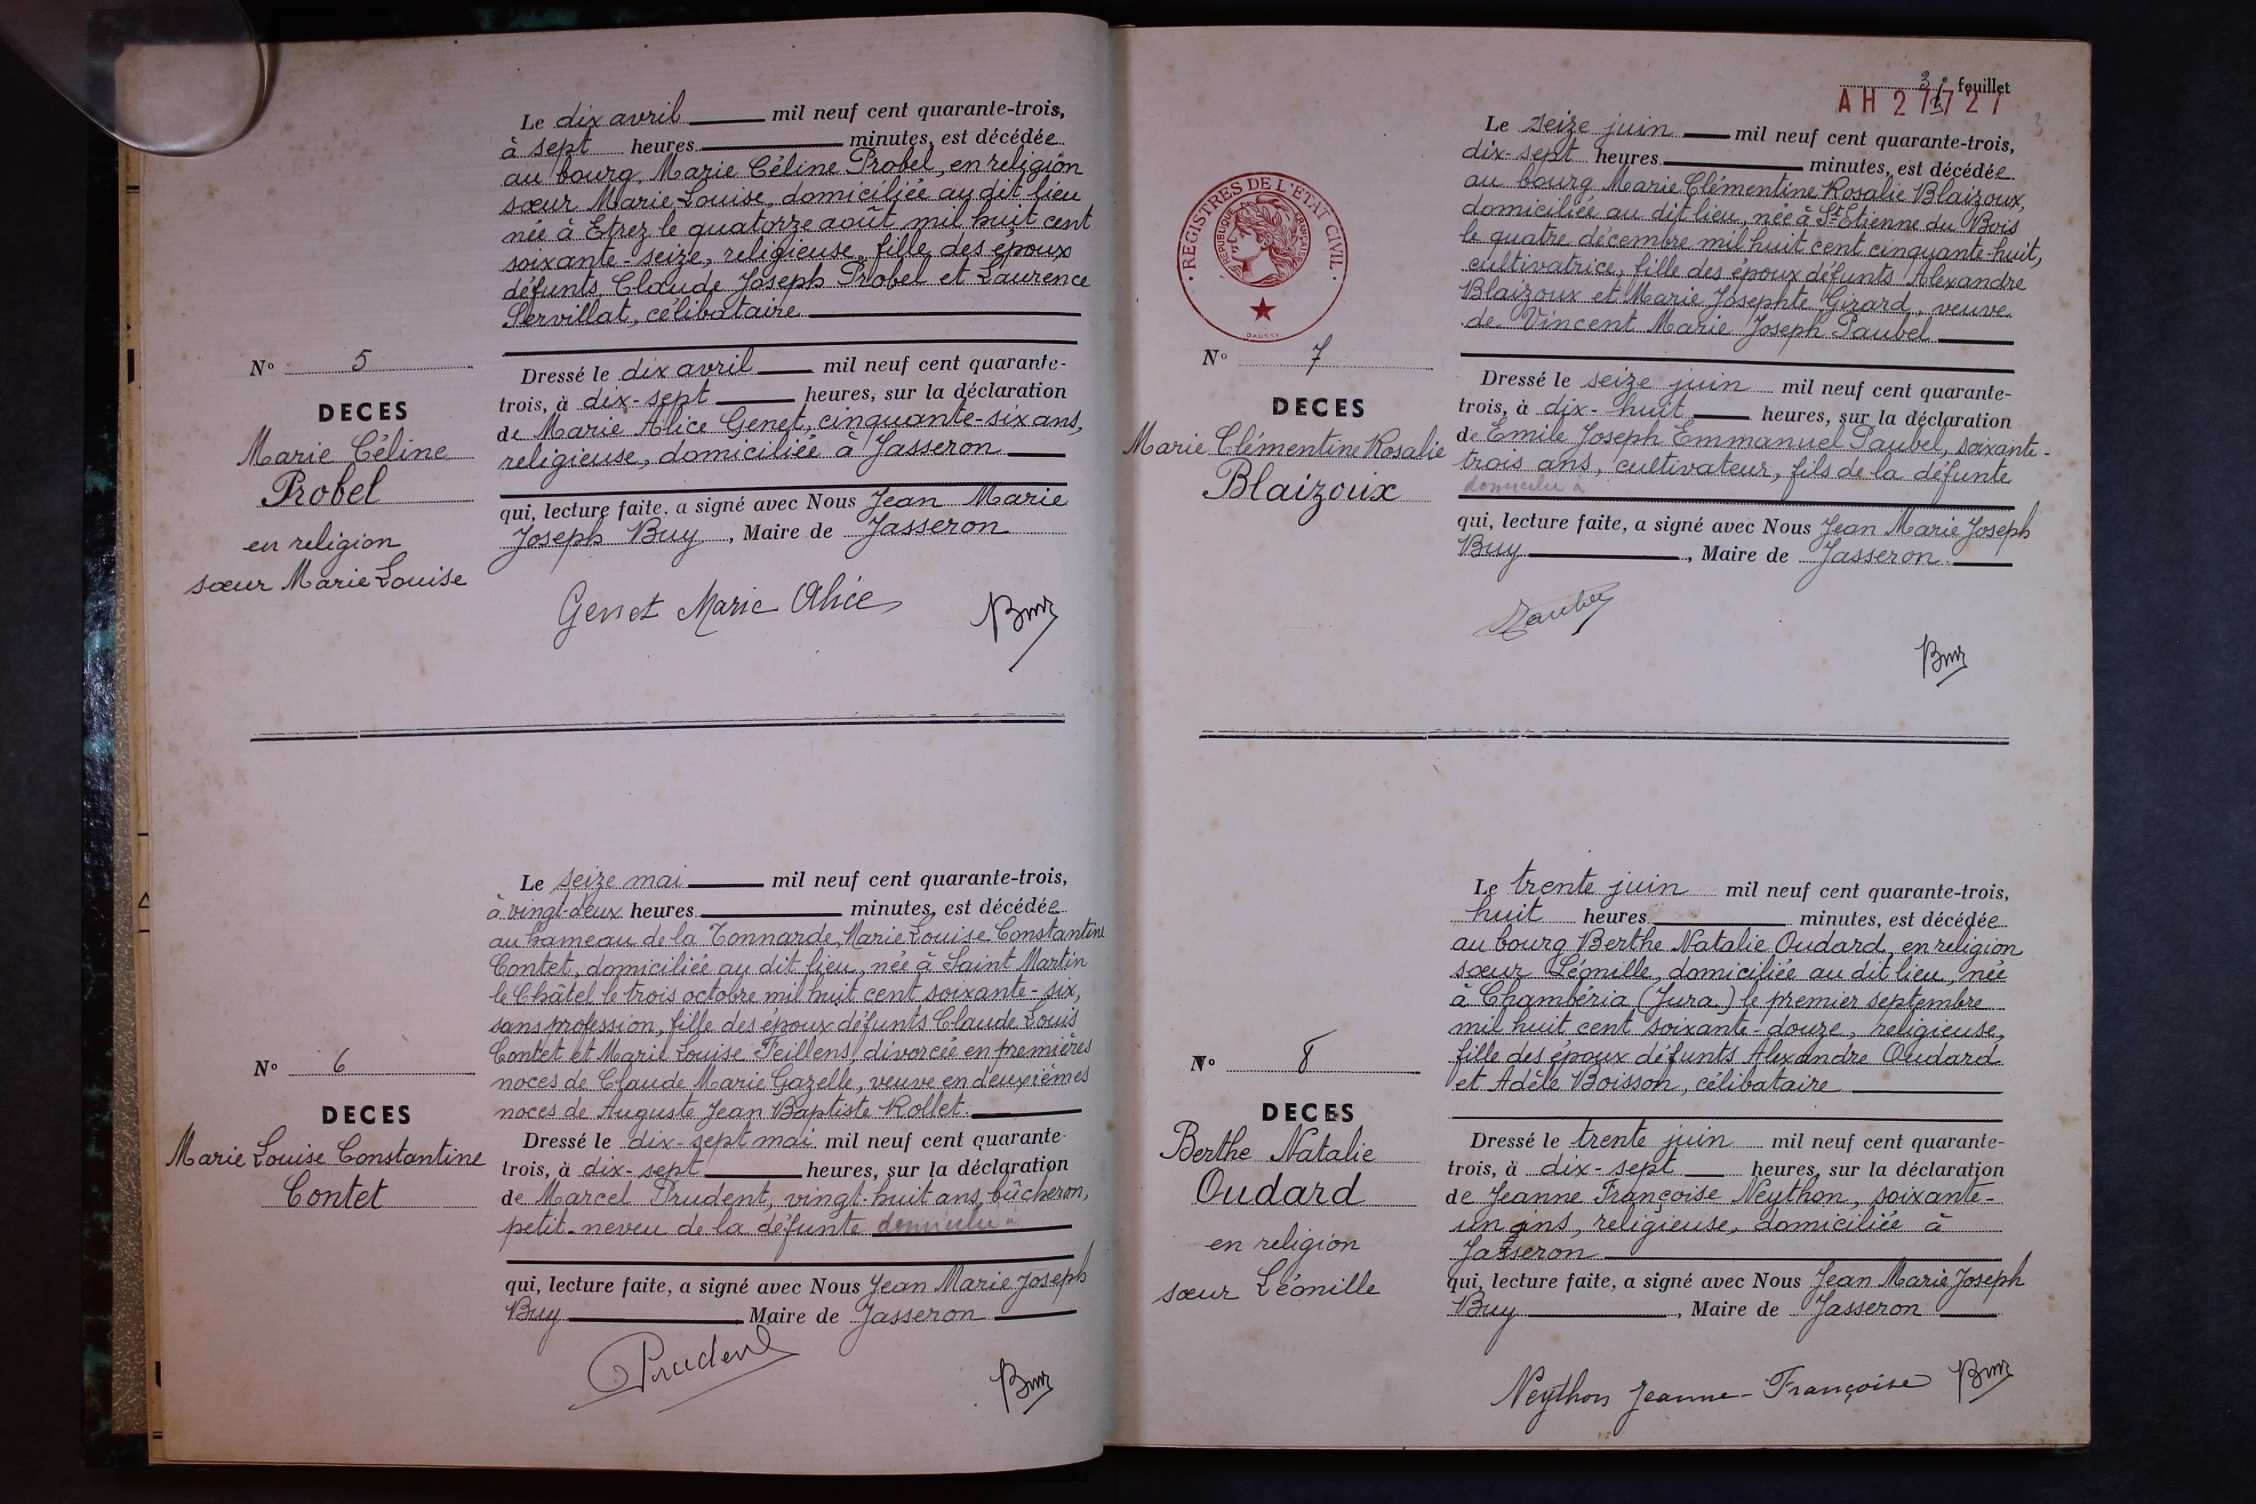 Le dix avril mil neuf cent quarante-trois,
à sept heures minutes, est décédée
au bourg, Marie Céline Probel, en religion
sœur Marie Louise, domiciliée au dit lieu
née à Etrez le quatorze août mil huit cent
soixante-seize, religieuse, fille des époux
défunts Claude Joseph Probel et Laurence
Servillat, célibataire
N° 5
DECES
Marie Céline
Probel
en religion
sœur Marie Louise
Dressé le dix avril mil neuf cent quarante-
trois, à dix-sept heures, sur la déclaration
de Marie Alice Genet, cinquante-six ans,
religieuse, domiciliée à Jasseron
qui, lecture faite, a signé avec Nous Jean Marie
Joseph Buy, Maire de Jasseron
Genet Marie Alice Buy
Le seize mai mil neuf cent quarante-trois,
à vingt-deux heures minutes, est décédée
au hameau de la Tonnarde, Marie Louise Constantine
Contet, domiciliée au dit lieu, née à Saint Martin
le Châtel le trois octobre mil huit cent soixante-six,
sans profession, fille des époux défunts Claude Louis
Contet et Marie Louise Feillens, divorcée en premières
noces de Claude Marie Gazelle, veuve en deuxièmes
noces de Auguste Jean Baptiste Rollet.
N° 6
DECES
Marie Louise Constantine
Contet
Dressé le dix-sept mai mil neuf cent quarante-
trois, à dix-sept heures, sur la déclaration
de Marcel Prudent, vingt-huit ans, bûcheron,
petit-neveu de la défunte domicilié à
qui, lecture faite, a signé avec Nous Jean Marie Joseph
Buy Maire de Jasseron
Prudent Buy
3e feuillet
AH 27727
3
REGISTRES DE L'ETAT CIVIL
REPUBLIQUE FRANÇAISE
DAUSSY
Le seize juin mil neuf cent quarante-trois,
dix-sept heures minutes, est décédée
au bourg Marie Clémentine Rosalie Blaizoux,
domiciliée au dit lieu, née à St Etienne du Bois
le quatre décembre mil huit cent cinquante-huit,
cultivatrice, fille des époux défunts Alexandre
Blaizoux et Marie Josephte Girard, veuve
de Vincent Marie Joseph Paubel
N° 7
DECES
Marie Clémentine Rosalie
Blaizoux
Dressé le seize juin mil neuf cent quarante-
trois, à dix-huit heures, sur la déclaration
de Emile Joseph Emmanuel Paubel, soixante-
trois ans, cultivateur, fils de la défunte
domicilié à
qui, lecture faite, a signé avec Nous Jean Marie Joseph
Buy, Maire de Jasseron.
Paubel
Buy
Le trente juin mil neuf cent quarante-trois,
huit heures minutes, est décédée
au bourg Berthe Natalie Oudard, en religion
sœur Léonille, domiciliée au dit lieu, née
à Chambéria (Jura) le premier septembre
mil huit cent soixante-douze, religieuse,
fille des époux défunts Alexandre Oudard
et Adèle Boisson, célibataire
N° 8
DECES
Berthe Natalie
Oudard
en religion
sœur Léonille
Dressé le trente juin mil neuf cent quarante-
trois, à dix-sept heures, sur la déclaration
de Jeanne Françoise Neython, soixante-
un ans, religieuse, domiciliée à
Jasseron
qui, lecture faite, a signé avec Nous Jean Marie Joseph
Buy, Maire de Jasseron
Neython Jeanne-Françoise Buy